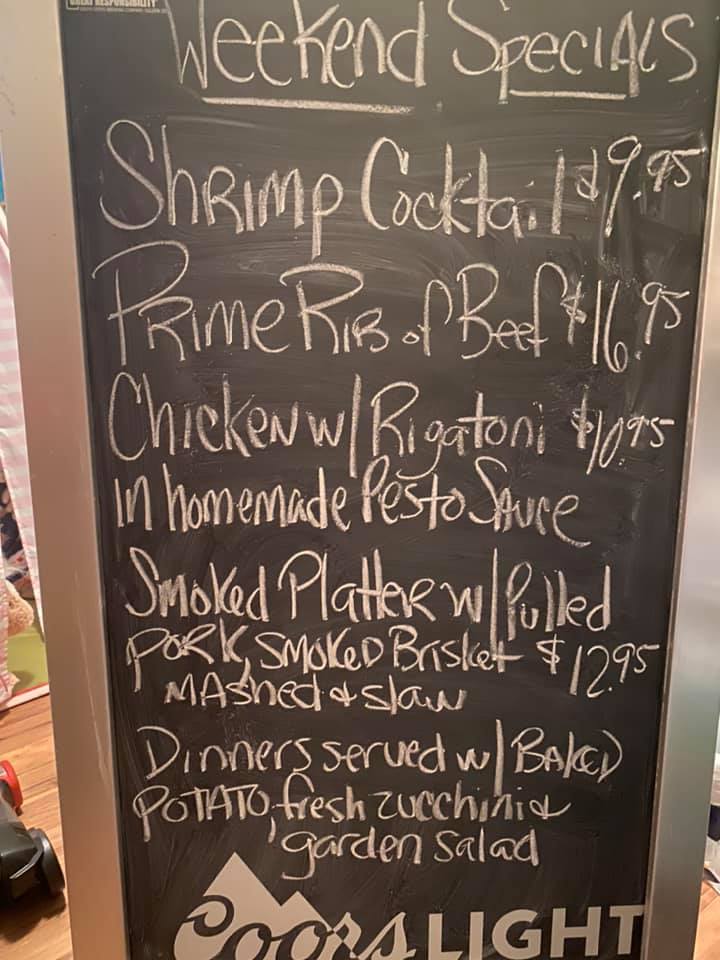 GREAT RESPONSIBILITY
Weekend Specials
Shrimp Cocktail $9.95
Prime Rib of Beef $16.95
Chicken w/ Rigatoni $10.95
in homemade Pesto Sauce
Smoked Platter w/ Pulled
Pork, Smoked Brisket $12.95
Mashed & slaw
Dinners served w/ Baked
Potato, fresh zucchini &
garden salad
Coors LIGHT